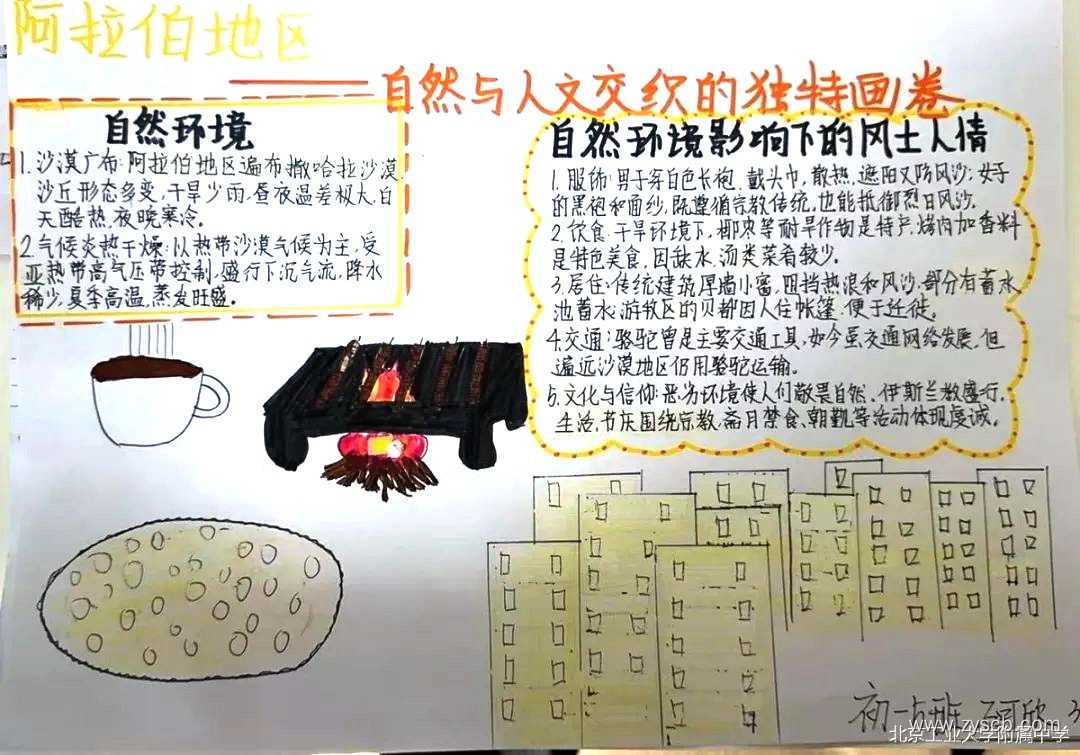 阿拉伯地区
——自然与人文交织的独特画卷
自然环境
1. 沙漠广布:阿拉伯地区遍布撒哈拉沙漠,
沙丘形态多变,干旱少雨,昼夜温差极大,白
天酷热,夜晚寒冷。
2. 气候炎热干燥:以热带沙漠气候为主,受
亚热带高气压带控制,盛行下沉气流,降水
稀少,夏季高温,蒸发旺盛。
自然环境影响下的风土人情
1. 服饰:男子穿白色长袍,戴头巾,散热,遮阳又防风沙;女子
的黑袍和面纱,既遵循宗教传统,也能抵御烈日风沙。
2. 饮食:干旱环境下,椰枣等耐旱作物是特产,烤肉加香料
是特色美食,因缺水,汤类菜肴较少。
3. 居住:传统建筑厚墙小窗,阻挡热浪和风沙,部分有蓄水
池蓄水;游牧区的贝都因人住帐篷,便于迁徙。
4. 交通:骆驼曾是主要交通工具,如今虽交通网络发展,但
遥远沙漠地区仍用骆驼运输。
5. 文化与信仰:恶劣环境使人们敬畏自然,伊斯兰教盛行,
生活、节庆围绕宗教,斋月禁食、朝觐等活动体现虔诚。
初一
www.zyscb.com
北京工业大学附属中学